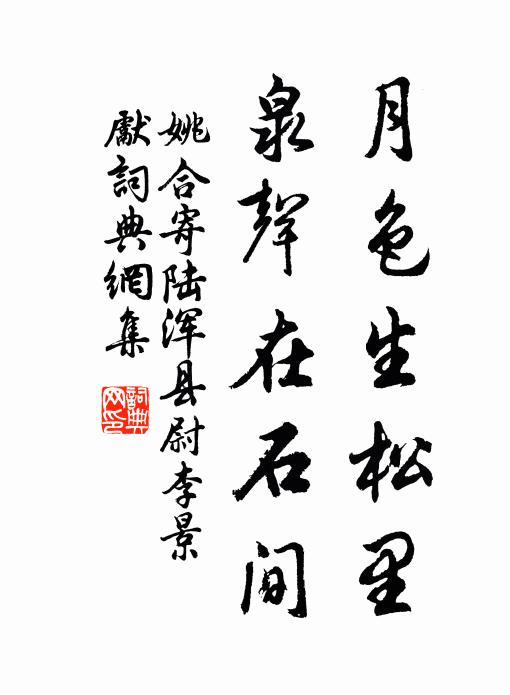 月色生松里
泉聲在石间
姚合寄陆浑县尉李景
獻詞典網集
詞典
网印